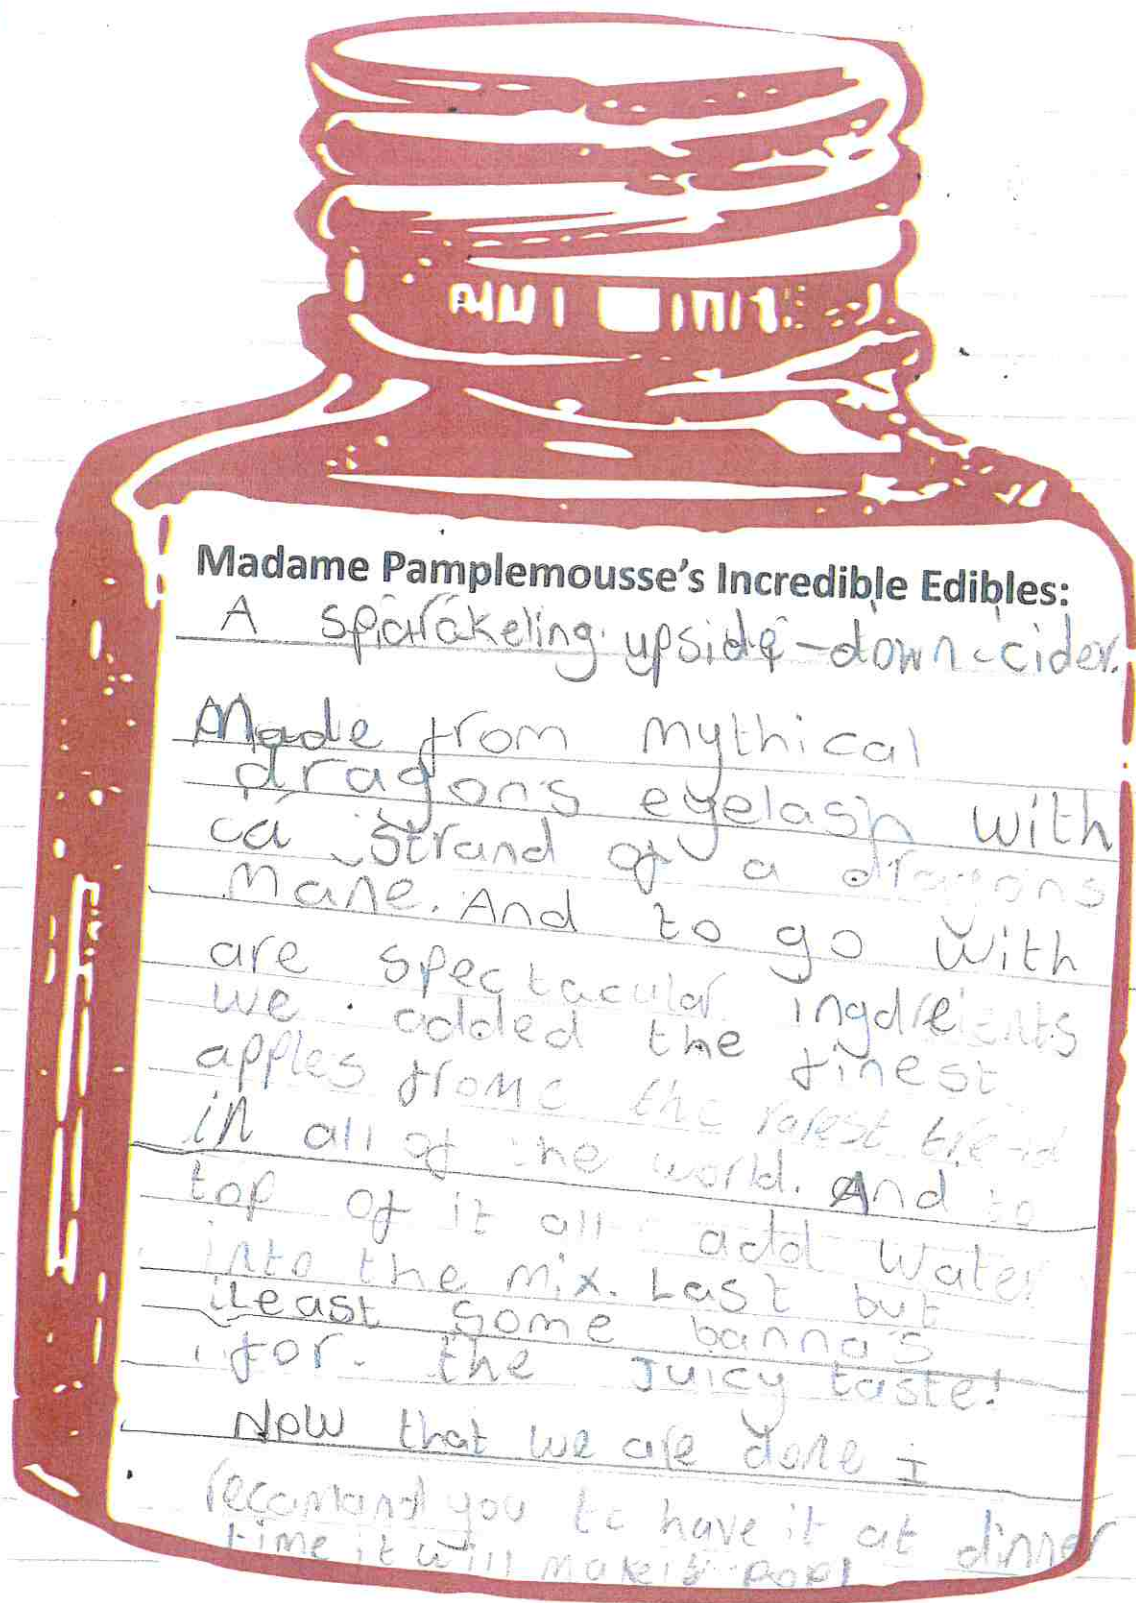 Madame Pamplemousse's Incredible Edibles:
A sparakeling upside-down-cider.
Made from mythical
dragons eyelash with
a strand of a dragons
mane. And to go with
are spectacular ingdreients
we added the finest
apples from the rarest
in all of the world. And to
top of it all add water
into the mix. Last but
least some banna's
for the juicy taste!
Now that we are done I
recomand you to have it at dinner
time it will make it pop!